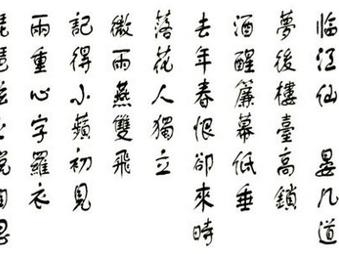 臨江仙 晏几道
夢後樓臺高鎖
酒醒簾幕低垂
去年春恨卻來時
落花人獨立
微雨燕雙飛
記得小蘋初見
兩重心字羅衣